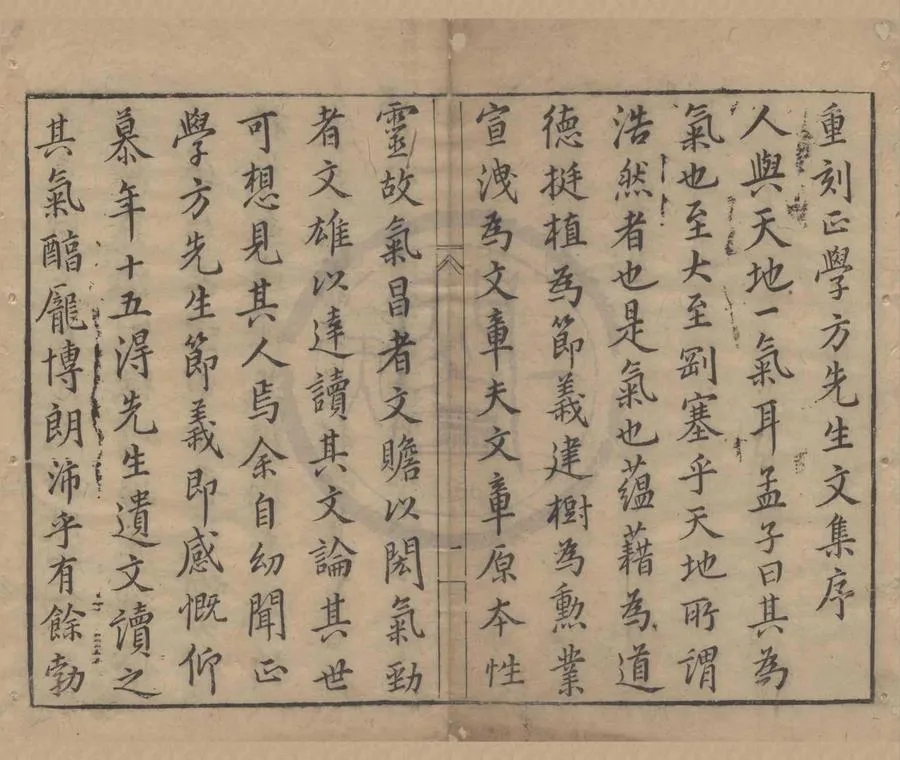 重刻正學方先生文集序
人與天地一氣耳孟子曰其為
氣也至大至剛塞乎天地所謂
浩然者也是氣也蘊藉為道
德挺植為節義建樹為勲業
宣洩為文章夫文章原本性
一
靈故氣昌者文贍以閎氣勁
者文雄以達讀其文論其世
可想見其人焉余自幼聞正
學方先生節義即感慨仰
慕年十五得先生遺文讀之
其氣醞龐博朗沛乎有餘勃